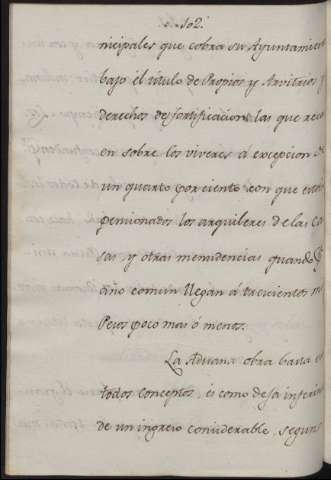 102.
nicipales que cobra su Ayuntamiento
bajo el titulo de Propios y Arvitrios y
derechos de fortificacion las que reca
en sobre los viveres á excepcion de
un quarto por ciento con que están
pensionados los arquileres de las ca
sas, y otras menudencias quando
año comun llegan á trecientos mi
Pesos poco mas ó menos.
La Aduana obra basta
todos conceptos, és como desa inferir
de un ingreso considerable, segun